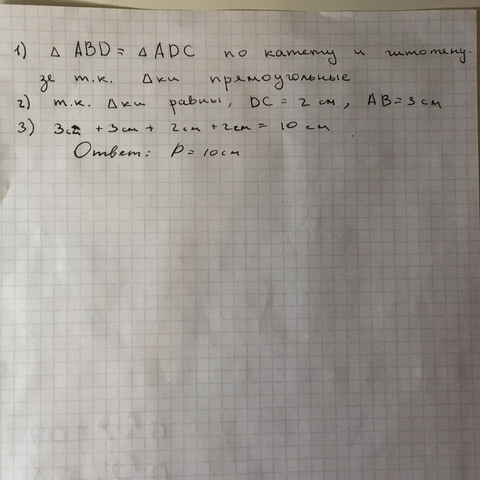 1) Δ ABD = Δ ADC по катету и гипотену-
зе т.к. Δки прямоугольные
2) т.к. Δки равны, DC = 2 см, AB = 3 см
3) 3см + 3см + 2см + 2см = 10 см
Ответ: P = 10 см